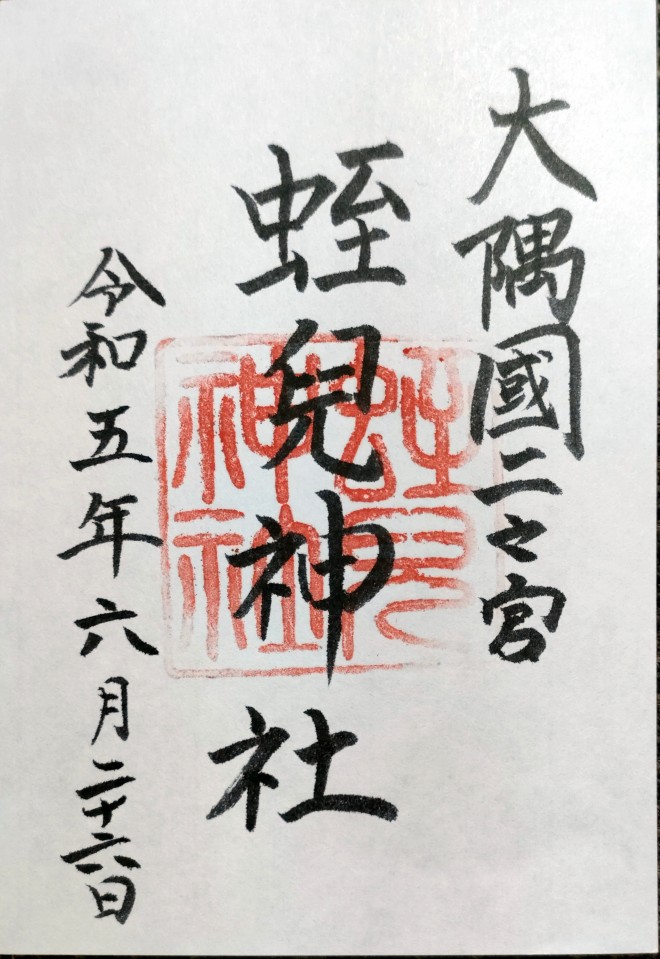 大隅國二々宮
蛭兒神社
令和五年六月二十六日
蛭兒神社